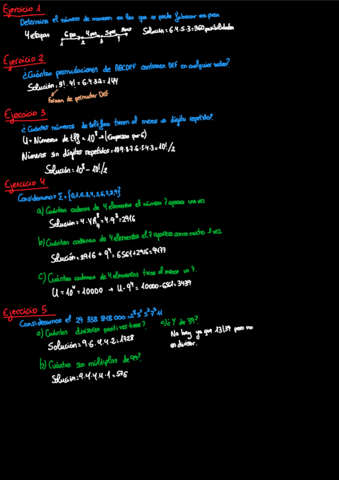 Ejercicio 1
Determina el número de maneras en las que se puede fabricar
4 etapas 6 4 Solución = 6·4·5·3 = 360 posibilidades
1 2 3
Ejercicio 2
¿Cuántas permutaciones de ABCDEF contienen DEF en cualquier orden?
Solución: 3! · 4! = 6·4·3·2 = 144
Formas de permutar DEF
Ejercicio 3
¿Cuántos números de teléfono tienen al menos un dígito repetido?
U = Números de = 10
Números sin dígitos repetidos = 10·9·8·7·6·5·4·3 = 10!/2
Solución: 10⁸ - 10!/2
Ejercicio 4
Consideramos Σ = {0,1,2,3,4,5,6,7,8,9}
a) Cuántas cadenas de 4 elementos el número 7 aparece una vez.
Solución = 4·9³ = 2916
b) Cuántas cadenas de 4 elementos el 7 aparece como mucho 1 vez.
Solución = 2916 + 9⁴ = 6561 + 2916 = 9477
c) ¿Cuántas cadenas de 4 elementos tiene al menos un 7.
U = 10⁴ = 10000 → U - 9⁴ = 10000 - 6561 = 3439
Ejercicio 5
Consideramos el 29 338 848 000 = 2⁸ 3⁵ 5³ 7³ 11
a) ¿Cuántos divisores positivos tiene? ¿Y de 39?
Solución = 9·6·4·4·2 = 1728
No hay ya que 13|39 pero no
es divisor.
b) ¿Cuántos son múltiplos de 99?
Solución = 9·4·4·4·1 = 576